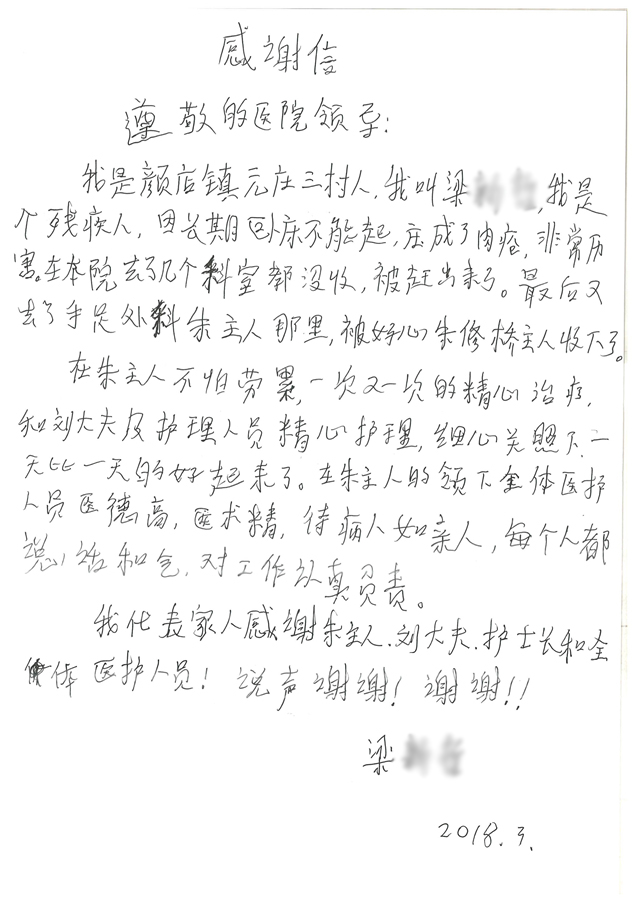 感谢信
遵敬的医院领导:
我是颜店镇元庄三村人,我叫梁,我是
个残疾人,因长期卧床不能起,压成了肉疮,非常历
害。在本院去了几个科室都没收,被赶出来了。最后又
去了手足外科朱主人那里,被好心朱修桥主人收下了。
在朱主人不怕劳累,一次又一次的精心治疗,
和刘大夫及护理人员精心护理,细心关照下,一
天比一天的好起来了。在朱主人的领下全体医护
人员医德高,医术精,待病人如亲人,每个人都
说话和气,对工作认真负责。
我代表家人感谢朱主人.刘大夫.护士长和全
体医护人员!说声谢谢!谢谢!!
梁
2018.3.